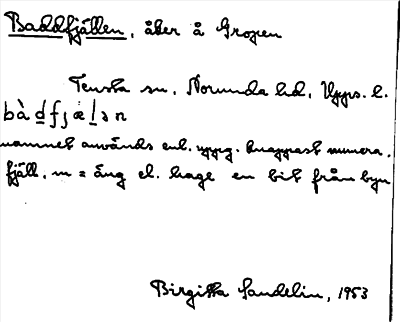 Baddfjällen, åker å Gropen
Tensta sn, Norunda hd, Upps. l.
bàdfjælən
namnet används enl. uppg. knappast numera.
fjäll, m = äng el. hage en bit från byn
Birgitta Sandelin, 1953